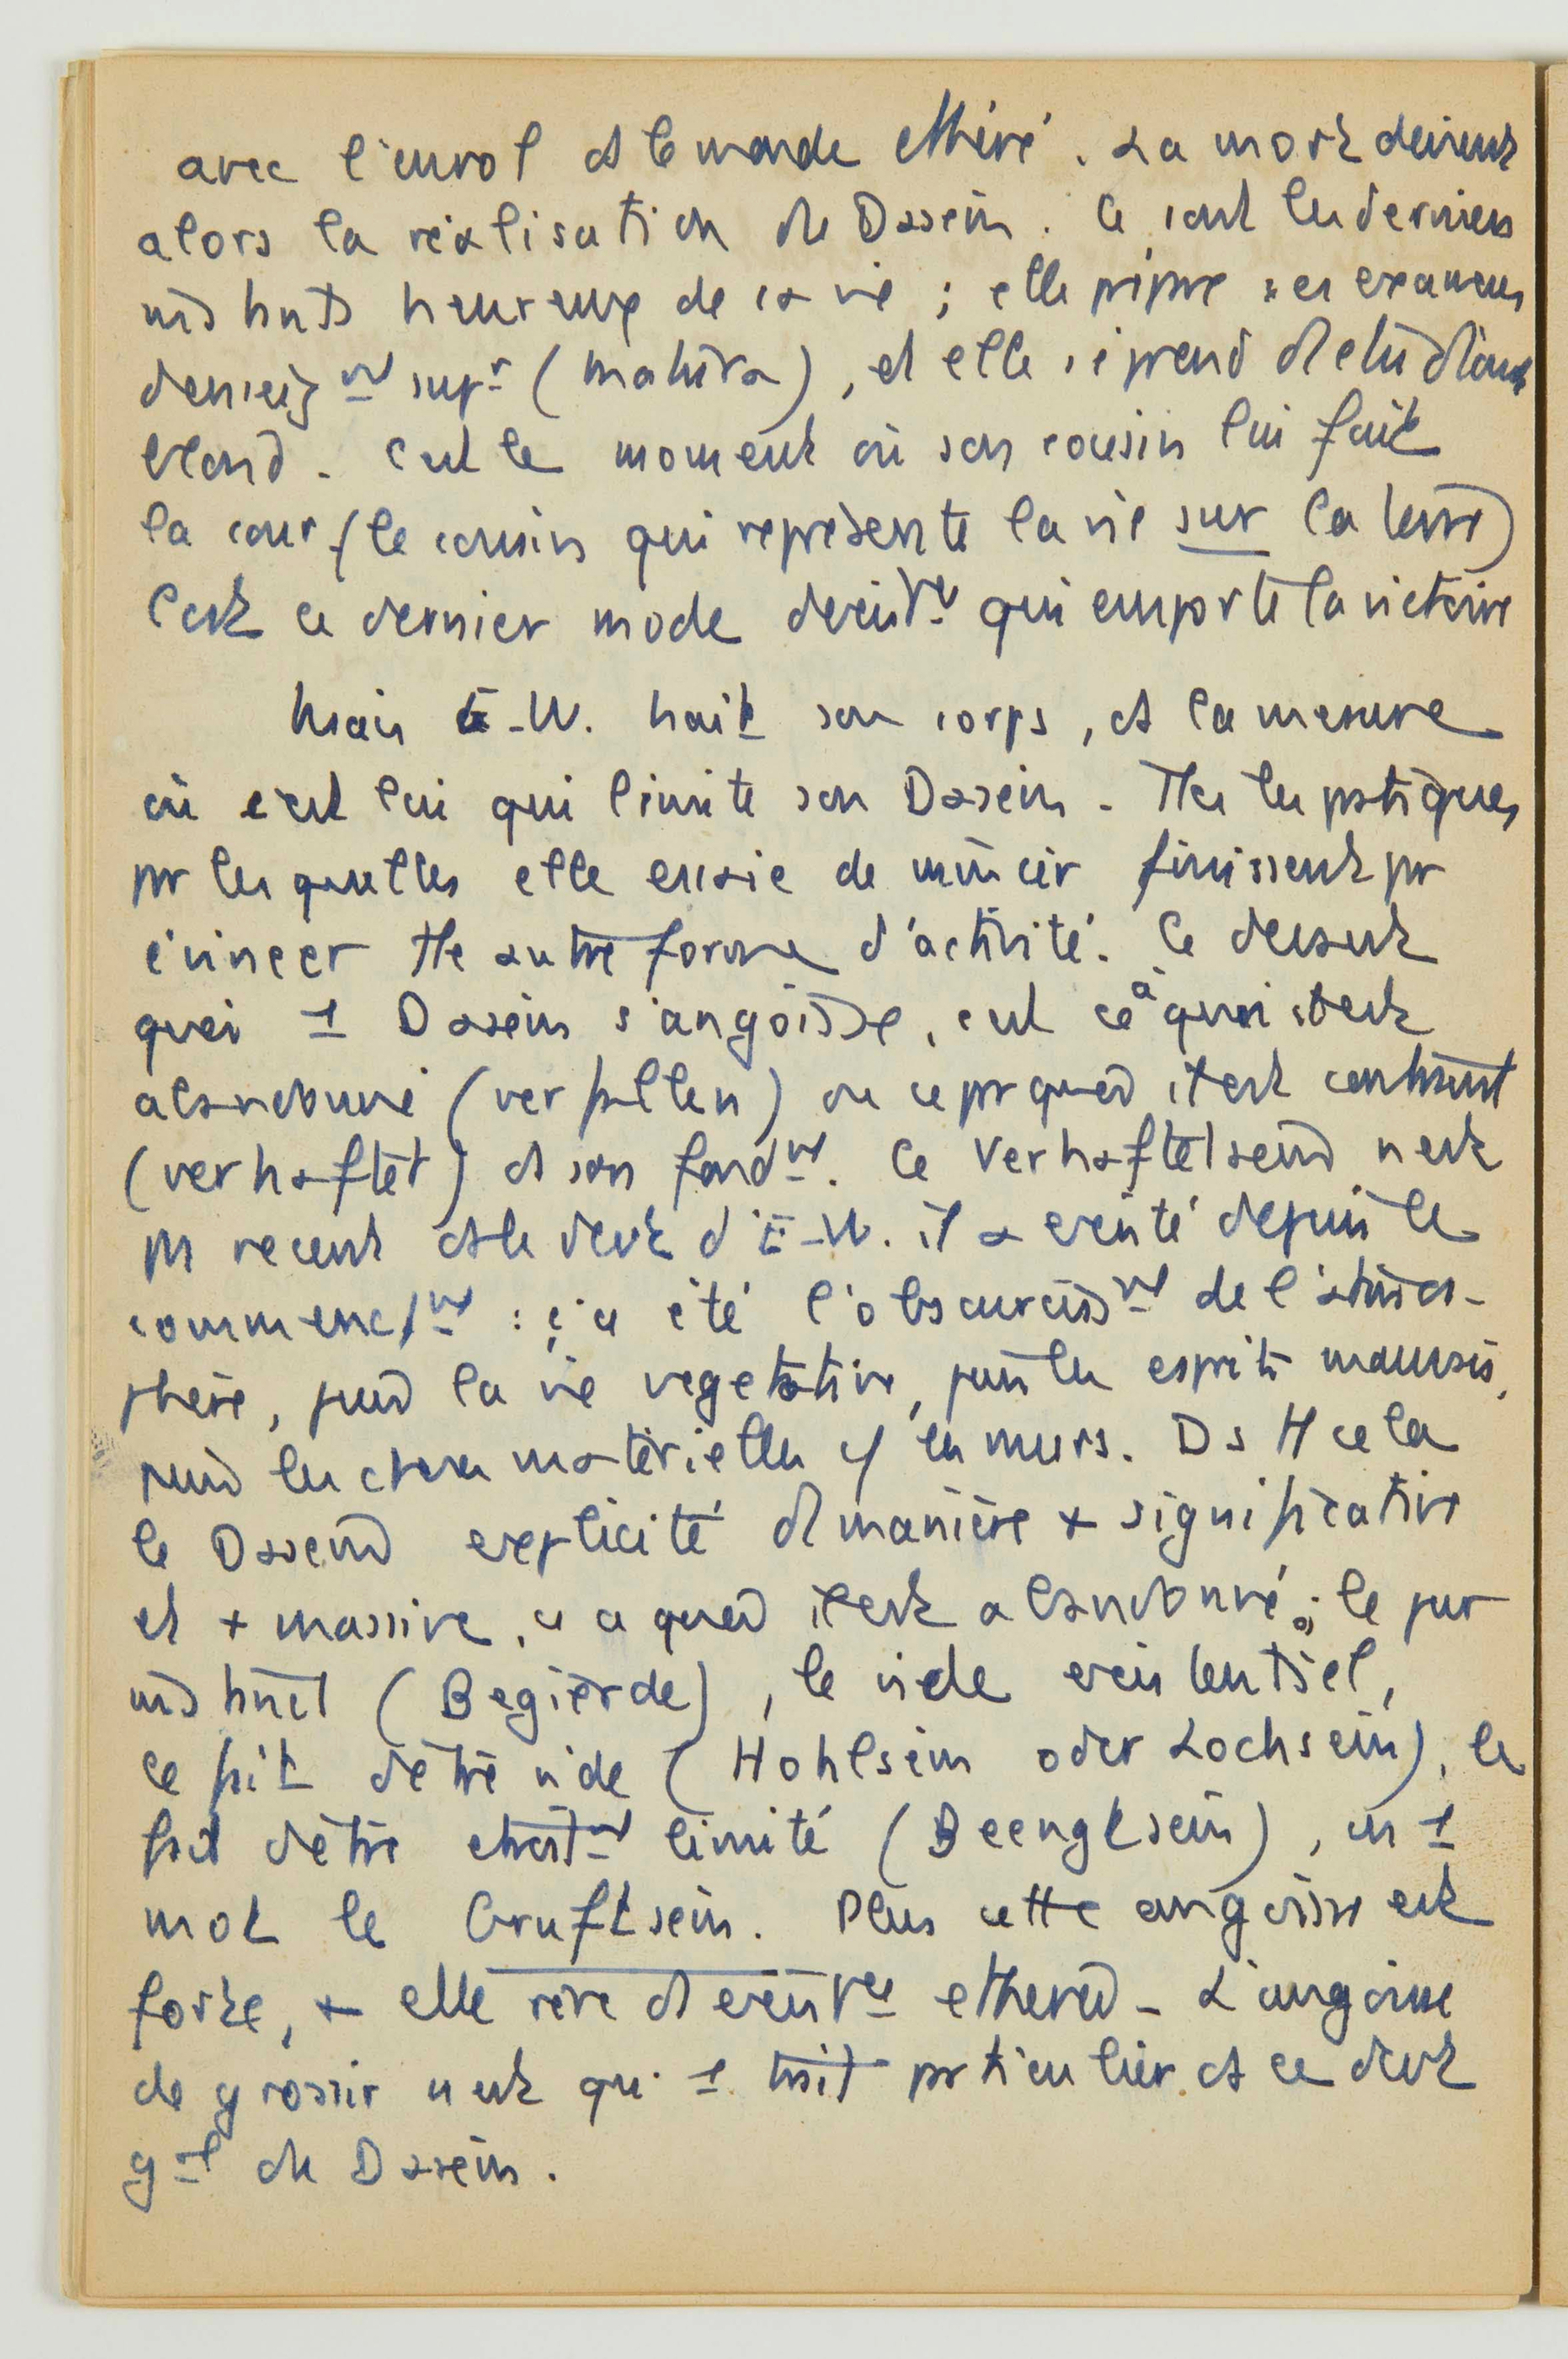 avec l'envol et le monde éthéré. La mort devient
alors la réalisation du Dasein. Ce sont les derniers
instants heureux de sa vie ; elle prépare ses examens
d'enseigt supr (matura), et elle s'éprend d'l'étudiant
blond. C'est le moment où son cousin lui fait
la cour (le cousin qui représente la vie sur la terre)
C'est ce dernier mode d'existce qui emporte la victoire
Mais E-W. hait son corps, ds la mesure
où c'est lui qui limite son Dasein - Ttes les pratiques
pr lesquelles elle essaie de mincir finissent pr
évincer tte autre forme d'activité. Ce devant
quoi 1 Dasein s'angoisse, c'est ce à quoi il est
abandonné (verfallen) ou ce pr quoi il est contraint
(verhaftet) ds son fondt. Ce Verhaftetsein n'est
pas récent ds le devt d'E-W. il a existé depuis le
commencet : ç'a été l'obscurcisst de l'atmos-
phère, puis la vie végétative, puis les esprits mauvais,
puis les choses matérielles c/ les murs. Ds tt cela
le Dasein explicite d'manière + significative
et + massive, ce à quoi il est abandonné ; le pur
instinct (Begierde), le vide existentiel,
le fait d'être vide (Hohlsein oder Lochsein), le
fait d'être étroitt limité (Beengtsein), en 1
mot le Gruftsein. Plus cette angoisse est
forte, + elle rêve d'existce éthérée - L'angoisse
de grossir n'est qu' 1 trait particulier ds ce devt
gal du Dasein.